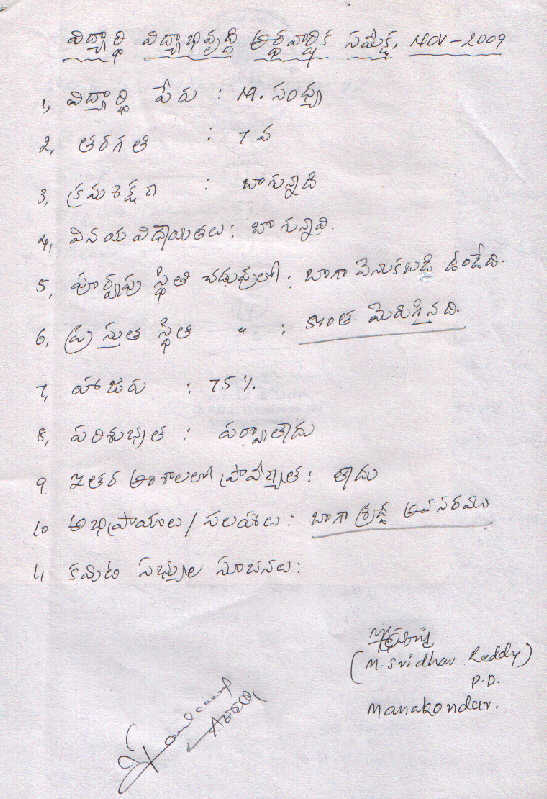 విద్యార్థి విద్యాభివృద్ధి అర్థవార్షిక సమీక్ష, NOV-2009
1, విద్యార్థి పేరు : M. సంధ్య
2, తరగతి : 7 వ
3, క్రమశిక్షణ : బాగున్నది
4, వినయ విధేయతలు : బాగున్నవి.
5, పూర్వపు స్థితి చదువులో : బాగా వెనుకబడి ఉండేది.
6, ప్రస్తుత స్థితి " : కొంత మెరుగైనది.
7, హాజరు : 75 %
8, పరిశుభ్రత : పర్వాలేదు
9 ఇతర అంశాలలో ప్రావీణ్యత : లేదు
10 అభిప్రాయాలు / సలహాలు : బాగా శ్రద్ధ అవసరము
11 కమిటి సభ్యుల సూచనలు :
(M. Sridhar Reddy)
P.D.
Manakondur.